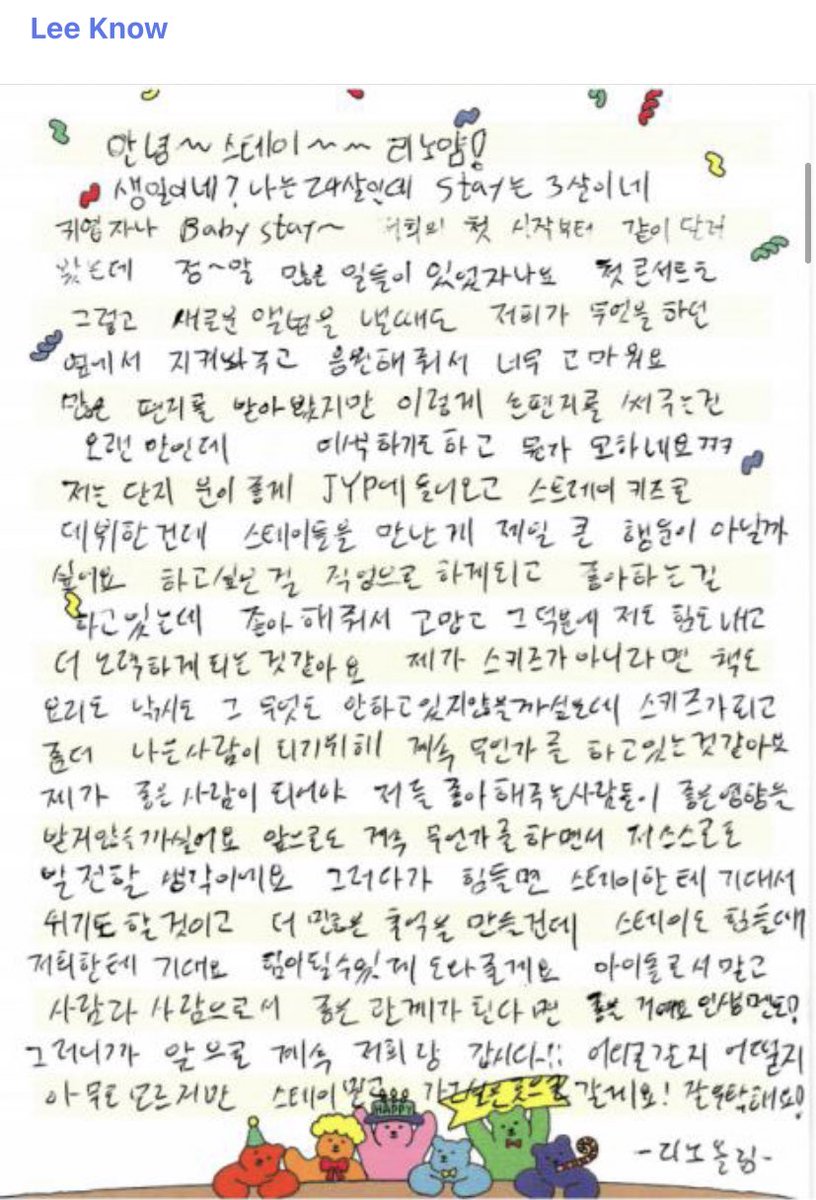 Lee Know
안녕~ 스테이~~ 리노얌!
생일이네? 나는 24살인데 Stay는 3살이네
귀엽자나 Baby stay~ 저희의 첫 시작부터 같이 달려
왔는데 정~말 많은 일들이 있었자나요 첫 콘서트도
그렇고 새로운 앨범을 낼때도 저희가 무언를 하던
옆에서 지켜봐주고 응원해줘서 너무 고마워요
많은 편지를 받아봤지만 이렇게 손편지를 써주는건
오랜만인데 어색하기도하고 뭔가 모하네요 ㅋㅋ
저는 단지 운이 좋게 JYP에 들어오고 스트레이키즈로
데뷔한건데 스테이들을 만난게 제일 큰 행운이 아닐까
싶어요 하고싶은걸 직업으로 하게되고 좋아하는걸
하고있는데 좋아해줘서 고맙고 그덕분에 저도 힘도내고
더 노력하게되는것같아요 제가 스키즈가아니라면 책도
요리도 낚시도 그 무엇도 안하고있지않을까싶은데 스키즈가되고
좀더 나은사람이 되기위해 계속 무언가를 하고있는것같아요
제가 좋은사람이 되어야 저를 좋아해주는사람들이 좋은영향을
받지않을까싶어요 앞으로도 계속 무언가를하면서 저스스로도
발전할 생각이에요 그러다가 힘들면 스테이한테 기대서
쉬기도할것이고 더 많은 추억을 만들건데 스테이도 힘들때
저희한테 기대요 힘이될수있게 도와줄게요 아이돌로서 말고
사람과 사람으로서 좋은관계가 된다면 좋은 거예요 인생멘토?
그러니까 앞으로 계속 저희랑 갑시다~!! 어디로갈지 어떨지
아무도모르지만 스테이 믿고 가고싶은곳으로 갈게요! 잘부탁해요!
HAPPY
-리노올림-